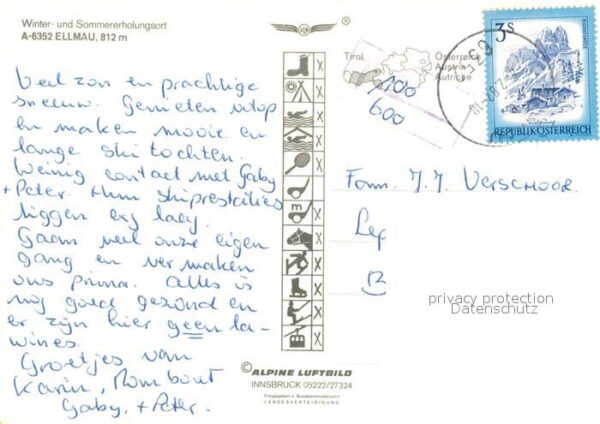 Winter- und Sommererholungsort
A-6352 ELLMAU, 812 m
Veel zon en prachtige
sneeuw. Genieten volop
en maken mooie en
lange ski tochten.
Weinig contact met Gaby
+ Peter. Hun skiprestaties
liggen erg laag.
Gaan veel onze eigen
gang en vermaken
ons prima. Alles is
nog goed gezond en
er zijn hier geen la-
wines.
Groetjes van
Karin, Rombout
Gaby, + Peter.
Tirol
Österreich
Austria
Autriche
100
600
3s
REPUBLIK ÖSTERREICH
Fam. J. J. Verschoor.
B
privacy protection
Datenschutz
m
© ALPINE LUFTBILD
INNSBRUCK 05222/27324
Freigegeben v. Bundesministerium f.
LANDESVERTEIDIGUNG